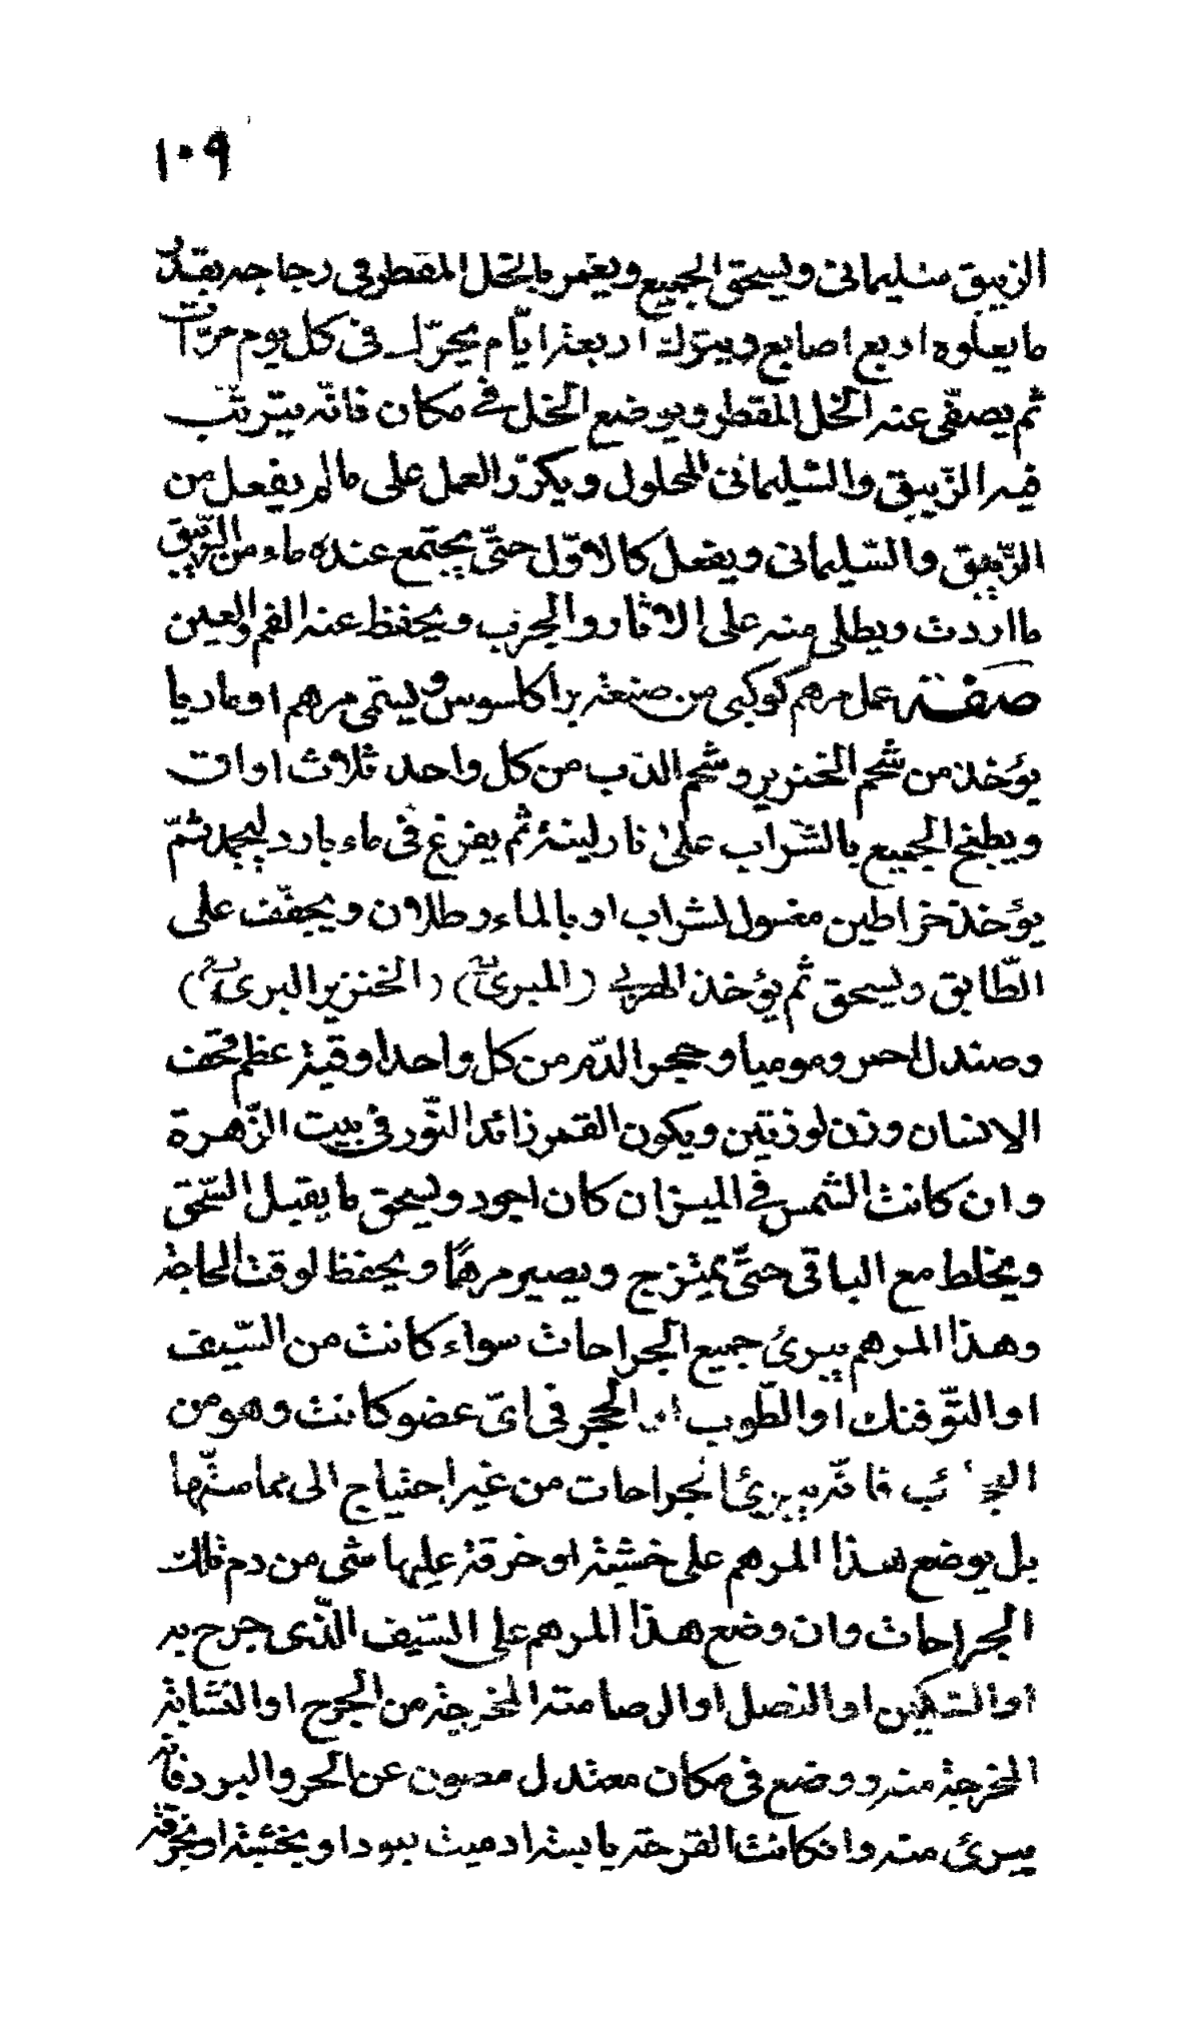 ١٠٩
الزيبق سليمانى ويسحق الجميع ويغمر بالخل المقطر فى زجاجه بقدر
ما يعلوه اربع اصابع ويترك اربعة ايّام يحرّك فى كل يوم مرّات
ثم يصفّى عنه الخل المقطر ويوضع الخل فى مكان فانّه يترتّب
فيه الزّيبق والسّليمانى المحلول ويكرّر العمل على ما لم يفعل من
الزّيبق والسّليمانى ويفعل كالاوّل حتّى يجتمع عنده ماء من الزّيبق
ما اردت ويطلى منه على الاثار والجرب ويحفظ عنه الفم والعين
صفة عمل مرهم كوكبى من صنعة براكلسوس ويسمّى مرهم اوماريا
يؤخذ من شحم الخنزير وشحم الدّب من كل واحد ثلاث اواق
ويطبخ الجميع بالشّراب على نار لينة ثم يفرغ فى ماء بارد ليجمد ثمّ
يؤخذ خراطين مغسول بشراب او بالماء رطلان ويجفّف على
الطّابق ويسحق ثم يؤخذ (المبرى) (الخنزير البرى)
وصندل احمر وموميا وحجر الدّم من كل واحد اوقية عظم قحف
الانسان وزن لوزتين ويكون القمر زائد النّور فى بيت الزّهرة
وان كانت الشمس فى الميزان كان اجود ويسحق ما يقبل السّحق
ويخلط مع الباقى حتّى يمتزج ويصير مرهمًا ويحفظ لوقت الحاجة
وهذا المرهم يبرئ جميع الجراحات سواء كانت من السّيف
او التّوفنك او الطّوب او الحجر فى اىّ عضو كانت وهو من
فانّه يبرئ الجراحات من غير احتياج الى مماسّتها
بل يوضع هذا المرهم على خشبة او خرقة عليها شى من دم تلك
الجراحات وان وضع هذا المرهم على السّيف الّذى جرح به
او السّكين او النصل او الرصاصة المخرجة من الجرح او النشّابة
المخرجة منه ووضع فى مكان معتدل مصون عن الحر والبرد فانه
يبرئ منه وان كانت القرحة يابسة ادميت بيود او بخشبة او بخرقة